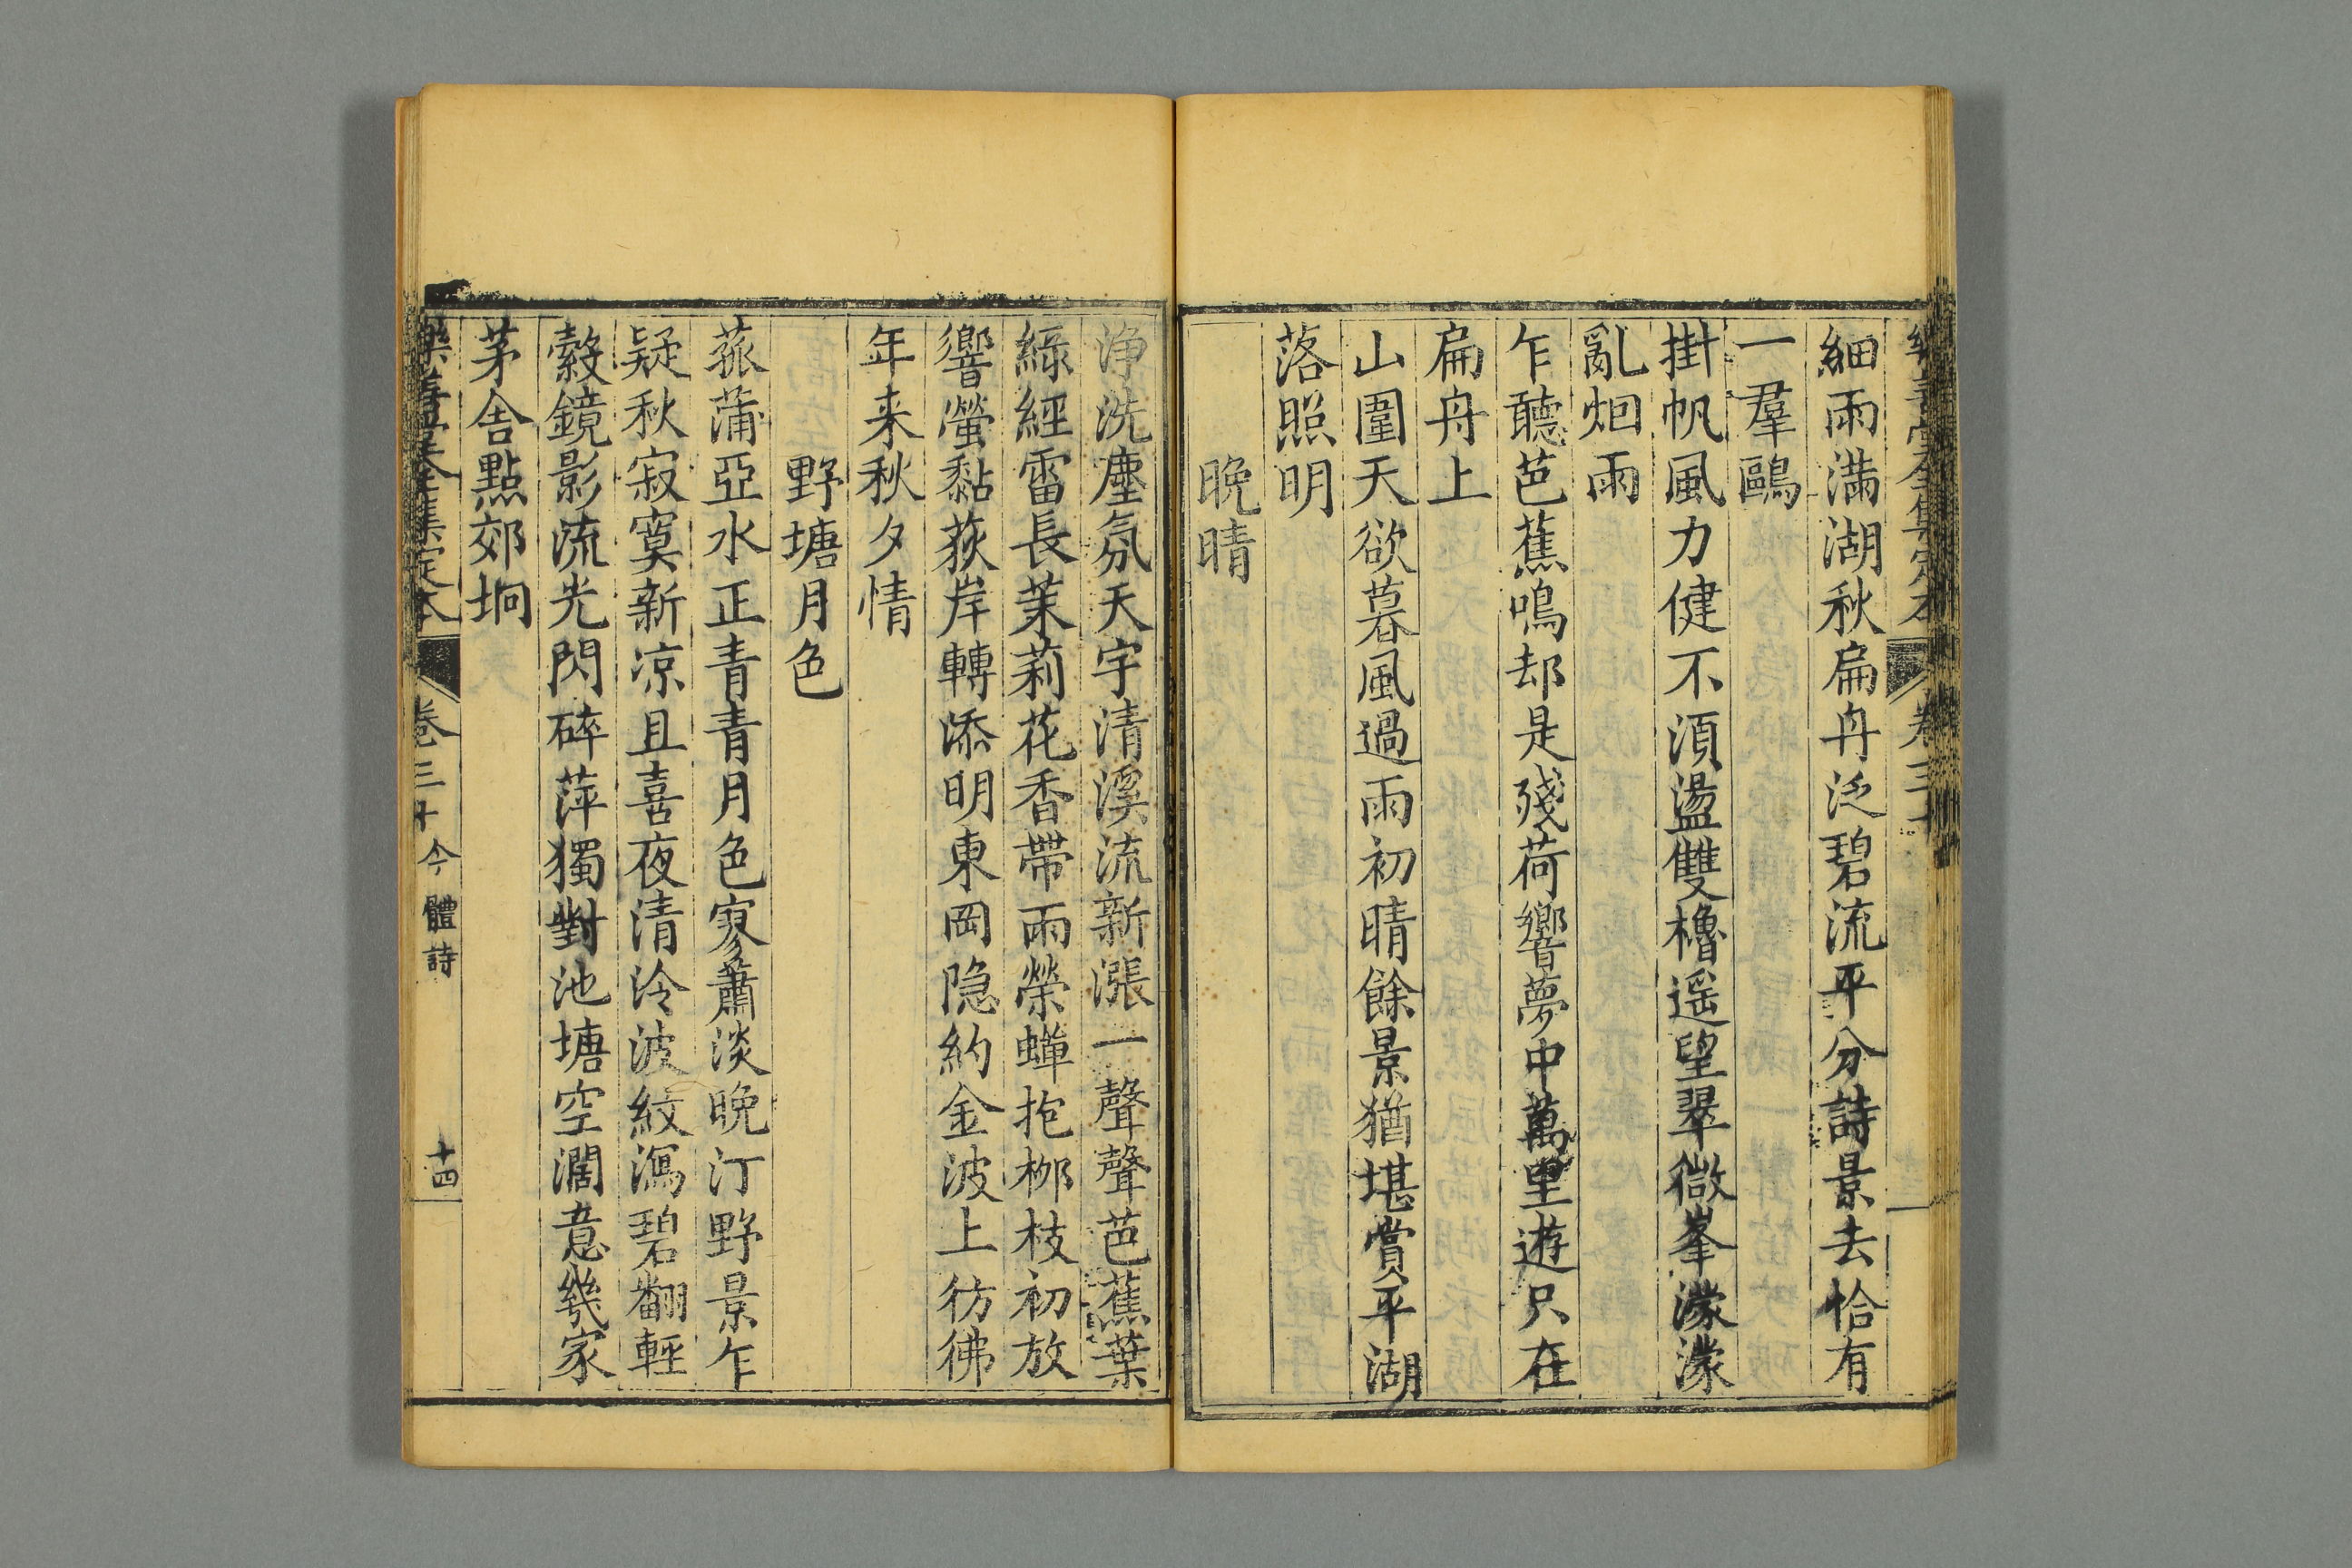 樂善堂全集定本 卷三十
細雨滿湖秋扁舟泛碧流平分詩景去恰有
一羣鷗
掛帆風力健不須盪雙櫓遥望翠微峯濛濛
亂烟雨
乍聽芭蕉鳴却是殘荷響夢中萬里遊只在
扁舟上
山圍天欲暮風過雨初晴餘景猶堪賞平湖
落照明
晚晴
淨洗塵氛天宇清溪流新漲一聲聲芭蕉葉
綠經雷長茉莉花香帶雨榮蟬抱柳枝初放
響螢黏荻岸轉添明東岡隐約金波上彷彿
年来秋夕情
野塘月色
菰蒲亞水正青青月色寥蕭淡晚汀野景乍
疑秋寂寞新凉且喜夜清泠波紋瀉碧翻輕
縠鏡影流光閃碎萍獨對池塘空濶意幾家
茅舍點郊坰
樂善堂全集定本 卷三十 今體詩 十四